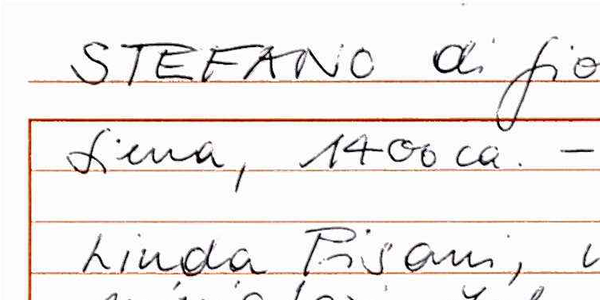 STEFANO di gio
Siena, 1400 ca. –
Linda Pisani,